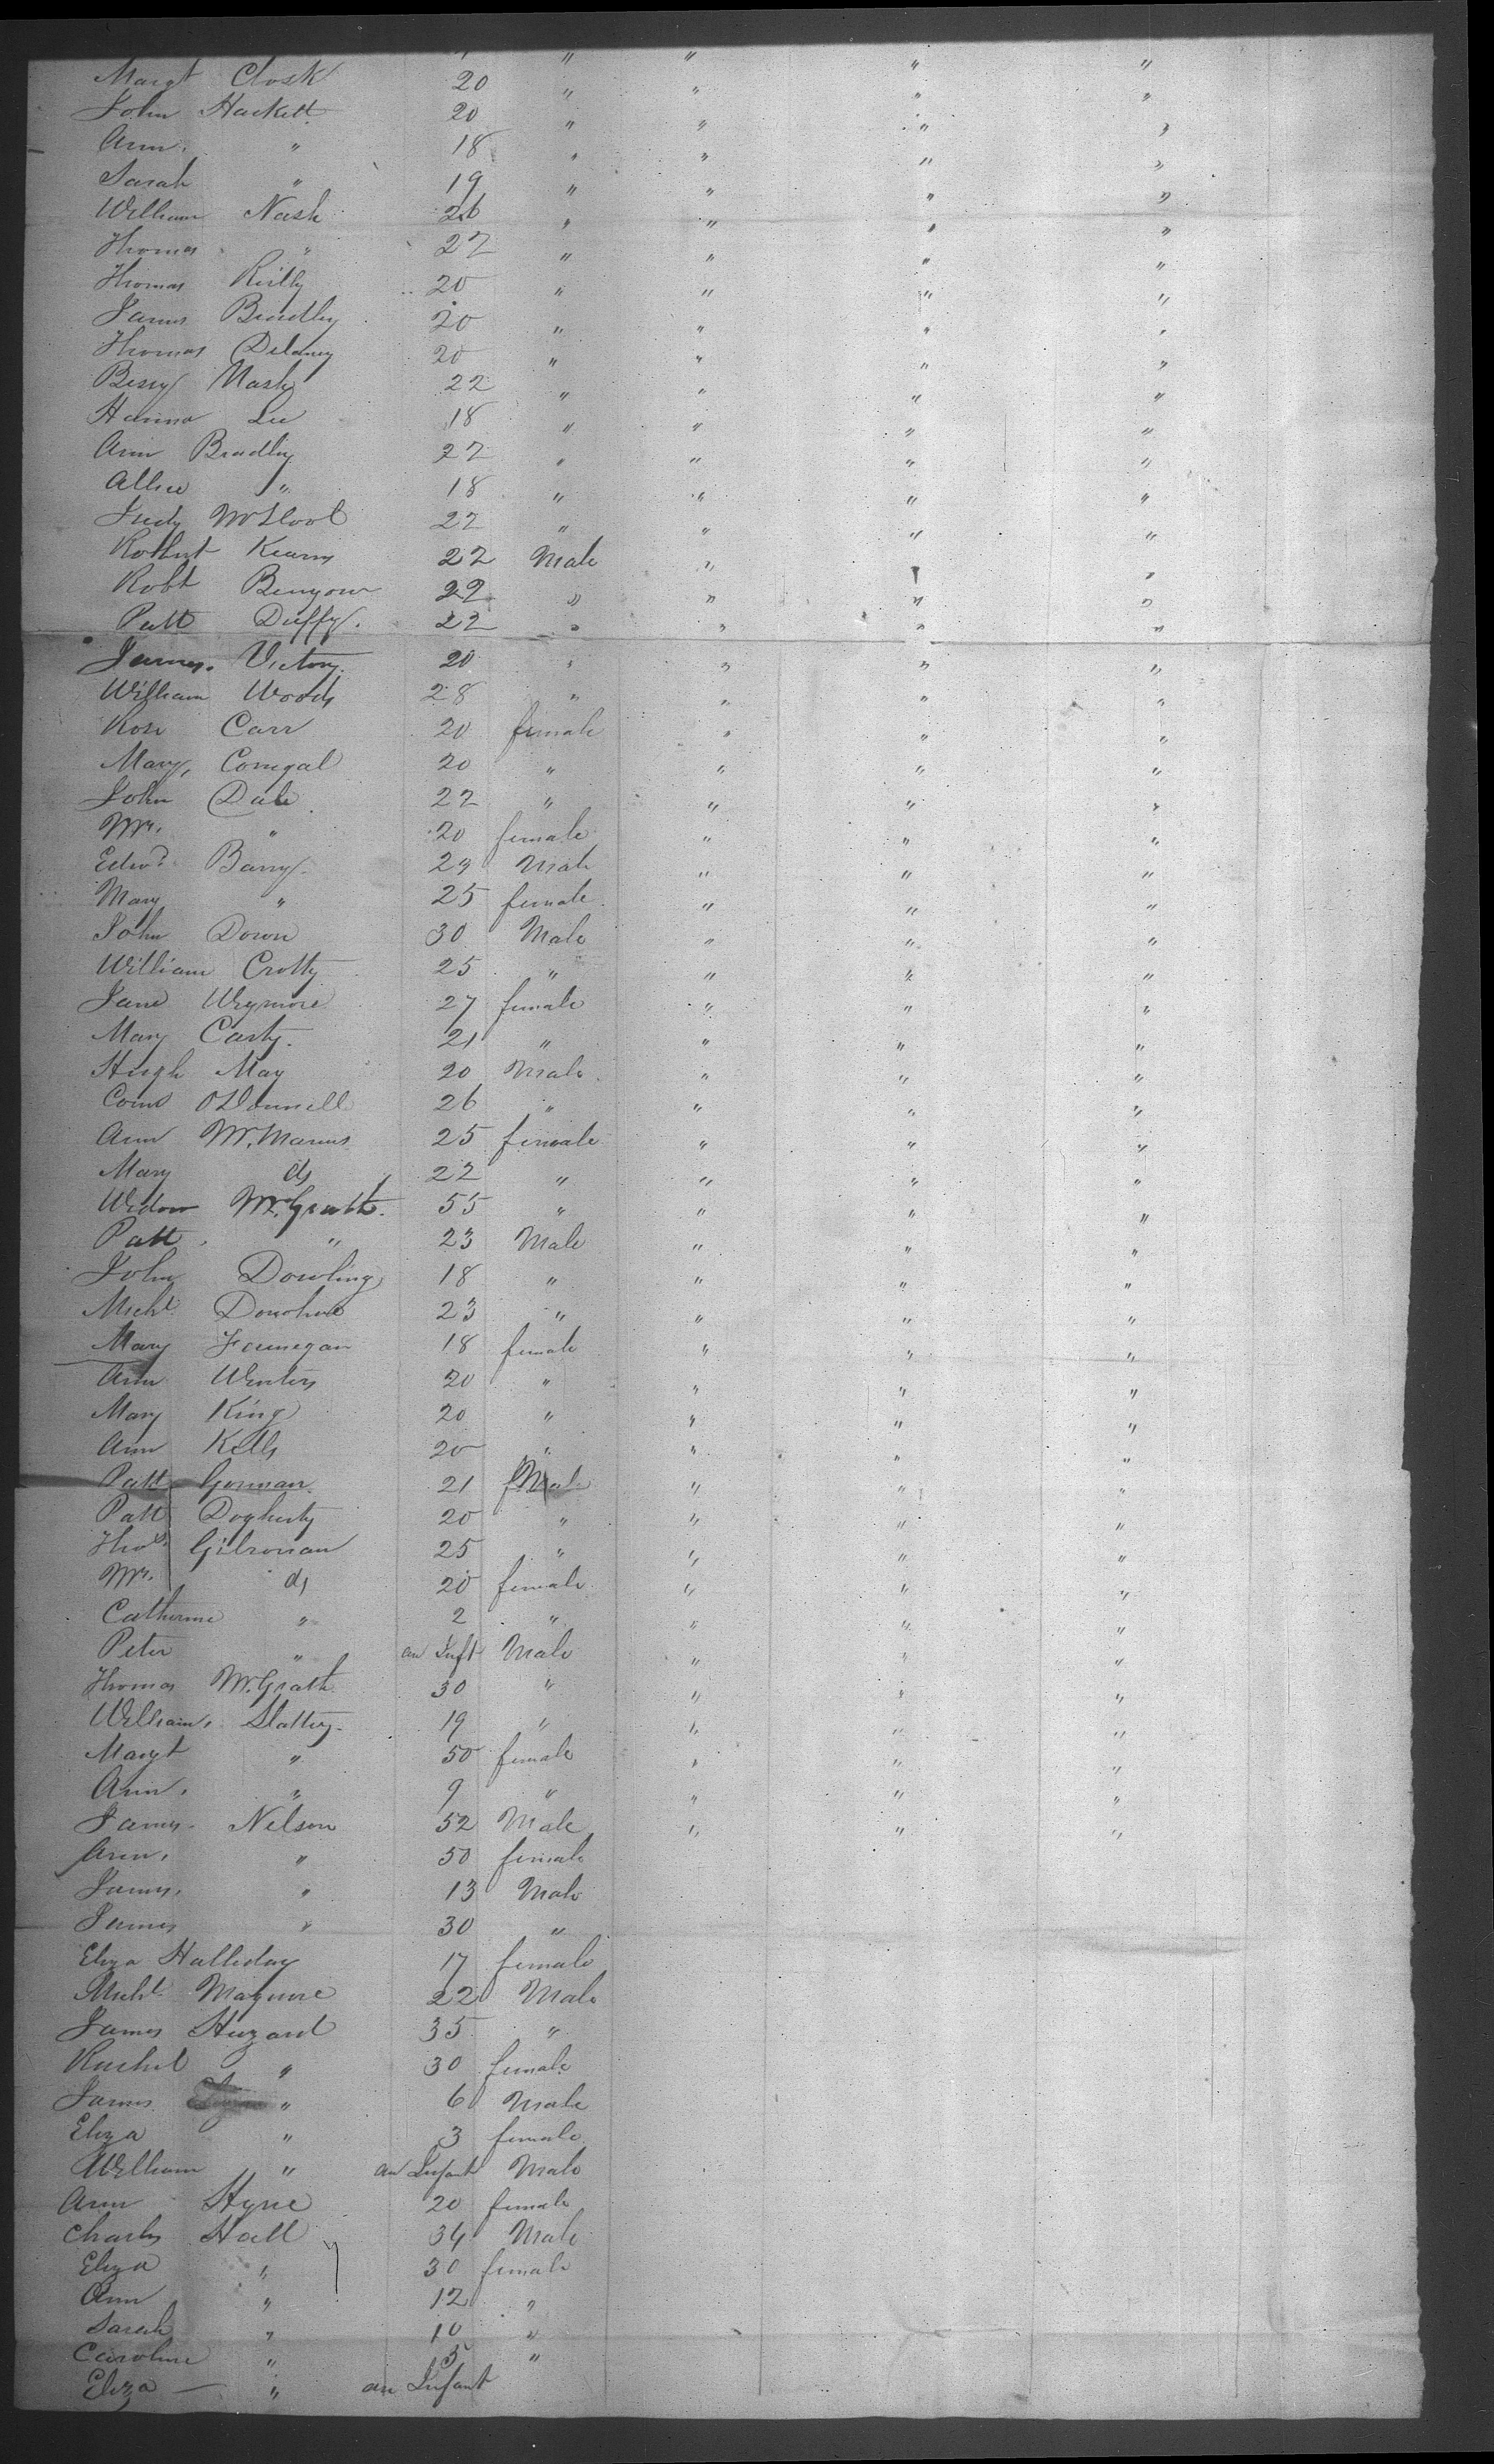 " " " "
Margt Closk 20 " " " "
John Hackett 20 " " " "
Ann " 18 " " " "
Sarah " 19 " " " "
William Nash 26 " " " "
Thomas " 22 " " " "
Thomas Reilly 20 " " " "
James Bradley 20 " " " "
Thomas Delaney 20 " " " "
Bessy Nash 22 " " " "
Hanna Lee 18 " " " "
Ann Bradley 22 " " " "
Allice " 18 " " " "
Judy 22 " " " "
Robert Kearns 22 Male " " "
Robt 22 " " " "
Patt Duffy. 22 " " " "
James. Victory. 20 " " " "
William Woods 28 " " " "
Rose Carr 20 female " " "
Mary, Conegal 20 " " " "
John Dale 22 " " " "
Mrs. " 20 female " " "
Edwd. Barry. 29 Male " " "
Mary " 25 female " " "
John Down 30 Male " " "
William Crotty 25 " " " "
Jane Weymore 27 female " " "
Mary Casty. 21 " " " "
Hugh May 20 Male " " "
O'Donnell 26 " " " "
Ann McManus 25 female " " "
Mary do 22 " " " "
Widow McGrath. 55 " " " "
Patt " 23 Male " " "
John Dowling 18 " " " "
Michl. Donohue 23 " " " "
Mary Founegan 18 female " " "
Ann Winters 20 " " " "
Mary King 20 " " " "
Ann Kells 20 " " " "
Patt Gorman. 21 Male " " "
Patt Dogherty 20 " " " "
Thos. Gilronan 25 " " " "
Mrs. do 20 female " " "
Catherine " 2 " " " "
Peter " an Inft Male " " "
Thomas McGrath 30 " " " "
William, Slattery. 19 " " " "
Margt " 50 female " " "
Ann, " 9 " " " "
James. Nelson 52 Male " " "
Ann, " 50 female
James, " 13 Male
James " 30 "
Eliza Halliday 17 female
Michl. Maguire 22 Male
James Huzard 35 "
Rachel " 30 female
James " 6 Male
Eliza " 3 female
William " an Infant Male
Ann Hyne 20 female
Charles Hall 34 Male
Eliza " 30 female
Ann " 12 "
Sarah " 10 "
Caroline " 5 "
Eliza — " an Infant